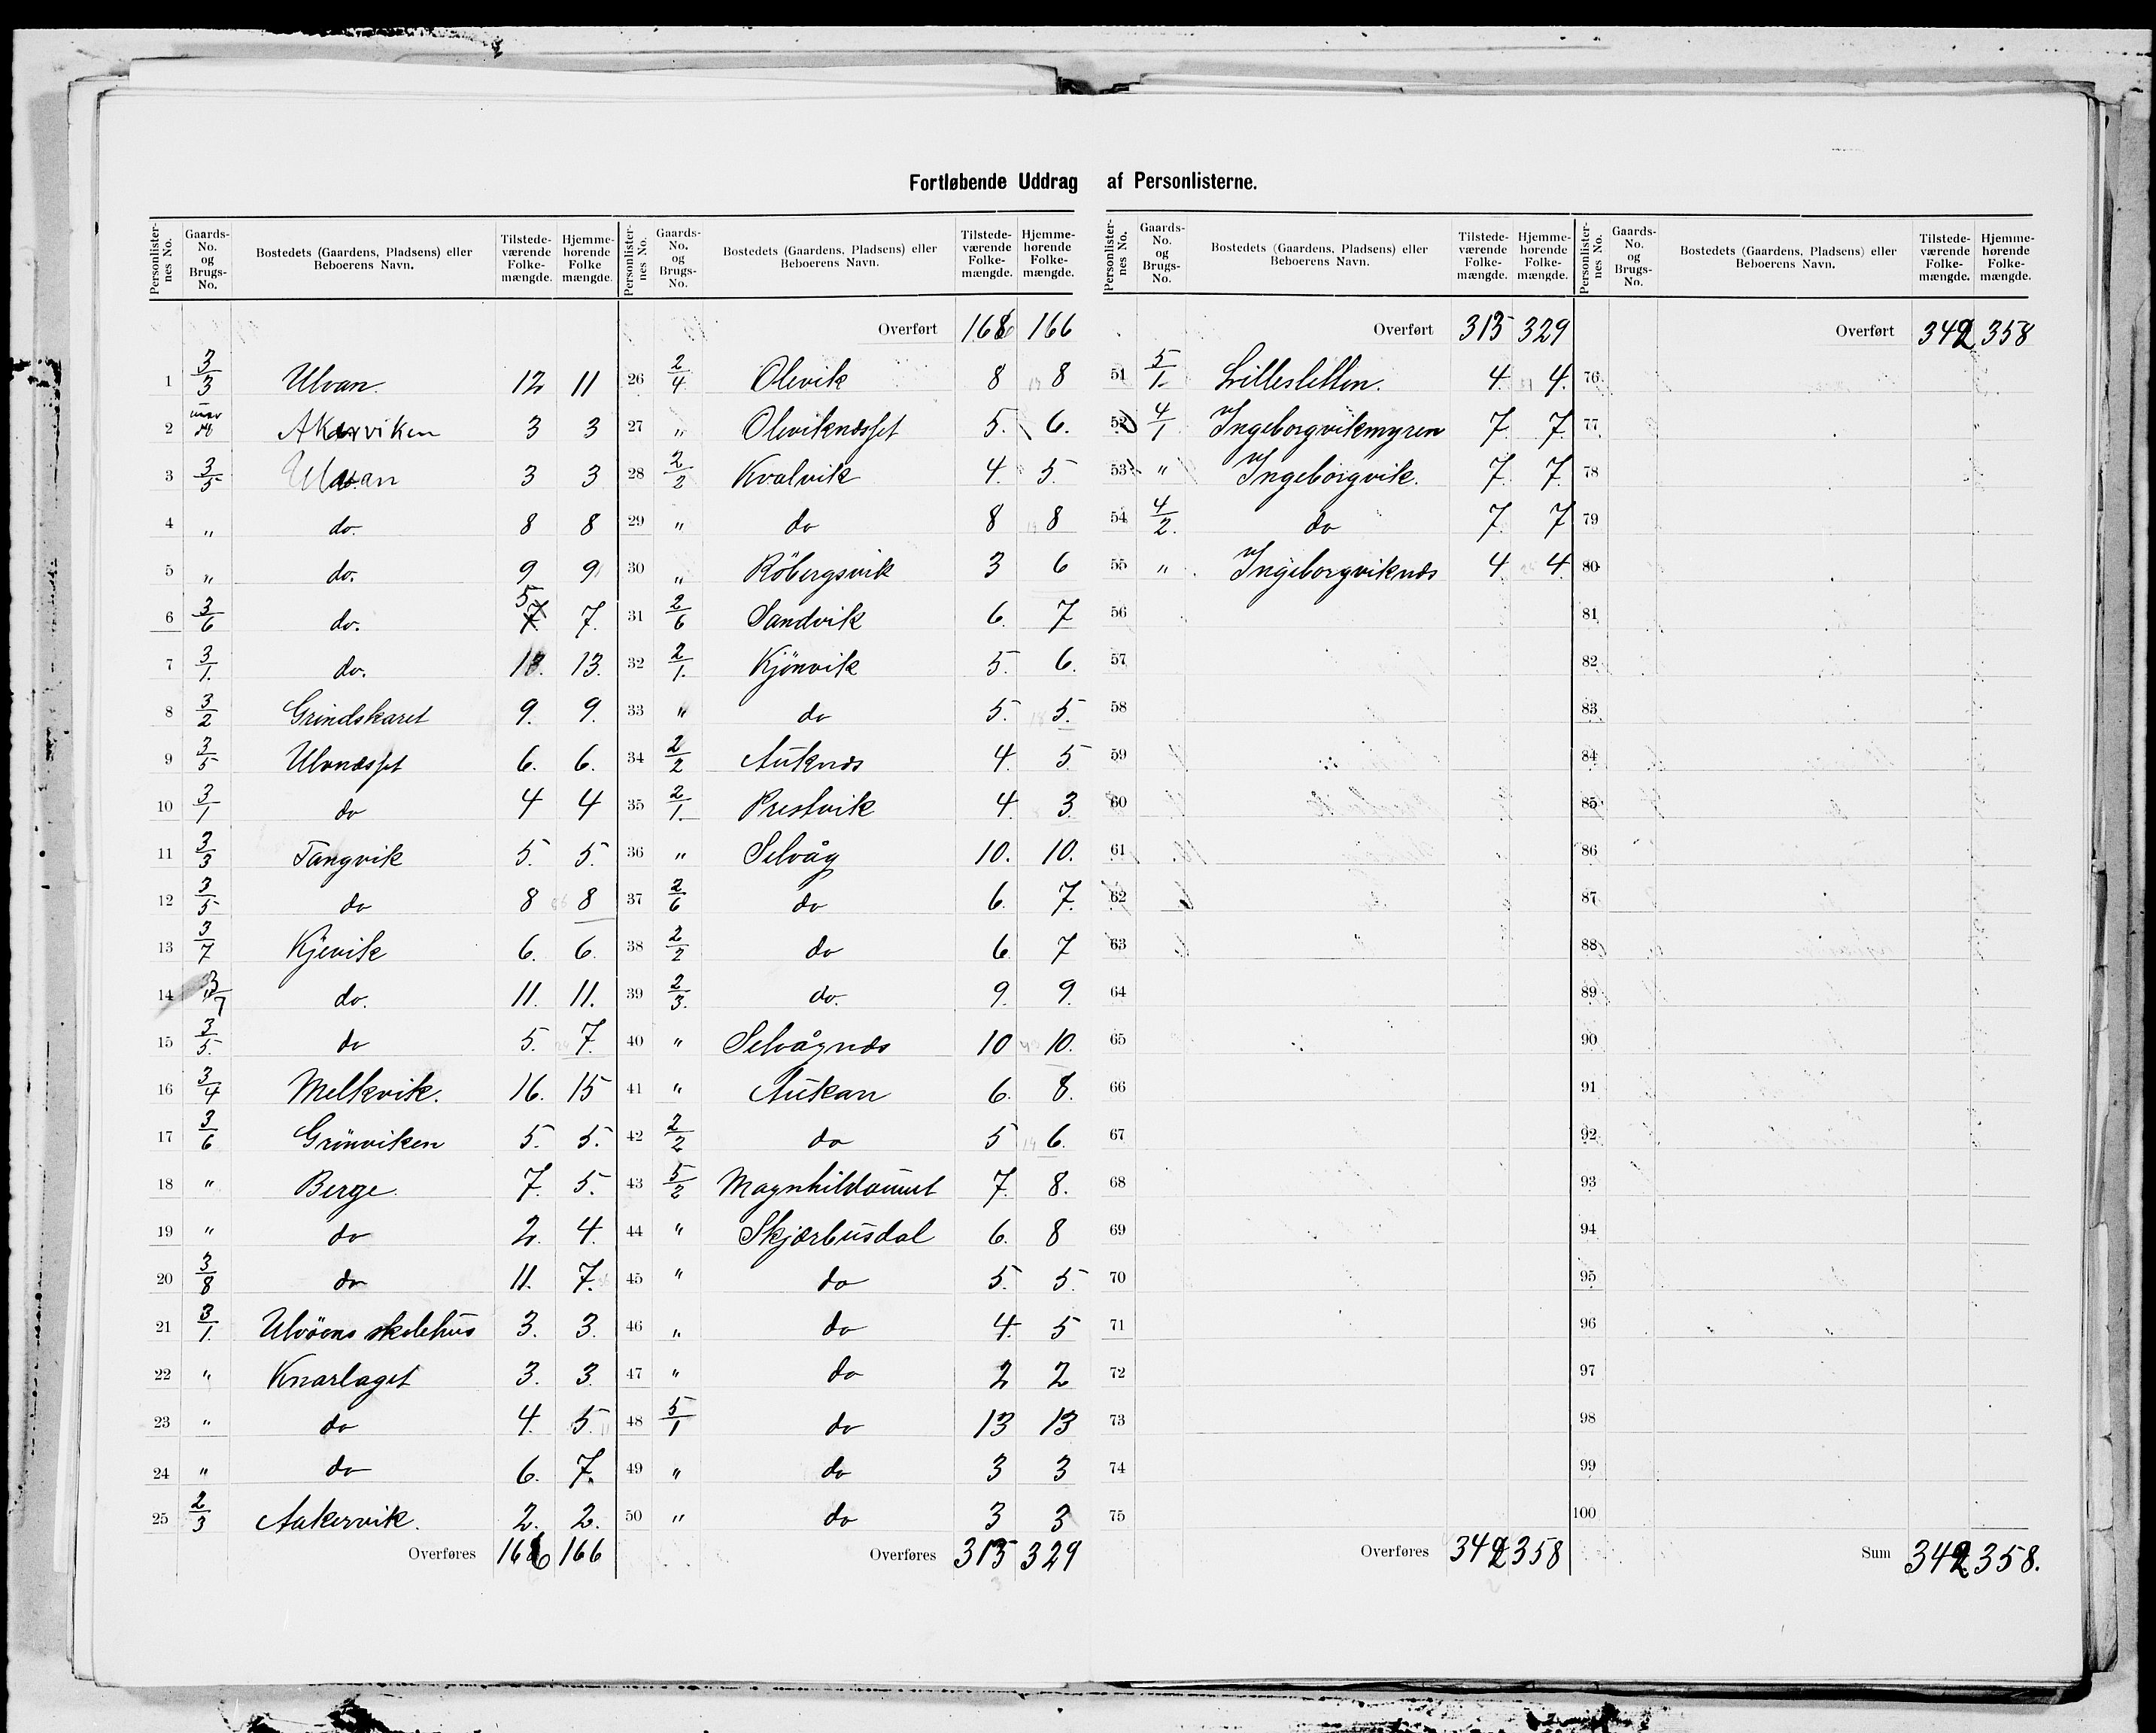 Fortløbende Uddrag af Personlisterne.
Personlisternes No. Gaards-No. og Brugs-No. Bostedets (Gaardens, Pladsens) eller Beboerens Navn. Tilstedeværende Folkemængde. Hjemmehørende Folkemængde.
1 3/3 Ulvan. 12 11
2 Akervikan 3 3
3 3/5 Ulvan 3 3
4 " do. 8 8
5 " do. 9 9
6 3/6 do. 5 7 7.
7 3/1. do. 13. 13.
8 3/2 Grindskaret 9. 9.
9 3/5 Ulvnæsset 6. 6.
10 3/1 do 4 4
11 3/3 Tangvik 5. 5.
12 3/5 do 8 8
13 3/7 Kjevik 6. 6.
14 3/7 do. 11. 11.
15 3/5. do 5. 7.
16 3/4 Melkvik. 16. 15
17 3/6 Grönviken 5. 5.
18 " Berge. 7. 5.
19 " do 2. 4.
20 3/8 do 11. 7.
21 3/1. Ulvöens skolehus 3. 3.
22 " Knarlaget 3. 3
23 " do 4. 5.
24 " do 6. 7.
25 2/3 Aakervik. 2. 2.
Overføres 166 166
Personlisternes No. Gaards-No. og Brugs-No. Bostedets (Gaardens, Pladsens) eller Beboerens Navn. Tilstedeværende Folkemængde. Hjemmehørende Folkemængde.
Overført 166 166
26 2/4 Olevik 8 8
27 " Oleviknæsset 5. 6.
28 2/2 Kvalvik 4. 5.
29 " do 8 8
30 " Röbergsvik 3 6
31 2/6 Sandvik 6. 7
32 2/1. Kjönvik 5. 6.
33 " do 5. 5.
34 2/2 Auknæs 4. 5
35 2/1. Prestvik 4. 3.
36 " Selvåg 10. 10.
37 2/6 do 6. 7.
38 2/2 do 6. 7
39 2/3. do. 9. 9.
40 " Selvågnæs 10 10.
41 " Aukan 6. 8.
42 2/2 do 5 6.
43 5/2 7. 8.
44 " Skjærbusdal 6. 8
45 " do 5. 5.
46 " do 4. 5
47 " do 2 2
48 5/1 do 13 13
49 " do 3 3
50 " do 3 3
Overføres 313 329
Personlisternes No. Gaards-No. og Brugs-No. Bostedets (Gaardens, Pladsens) eller Beboerens Navn. Tilstedeværende Folkemængde. Hjemmehørende Folkemængde.
Overført 313 329
51 5/1. Lillesletten. 4. 4.
52 4/1 Ingeborgvikmyren 7. 7.
53 " Ingeborgvik. 7. 7.
54 4/2. do 7. 7
55 " Ingeborgviknæs 4. 4.
56
57
58
59
60
61
62
63
64
65
66
67
68
69
70
71
72
73
74
75
Overføres 342 358
Personlisternes No. Gaards-No. og Brugs-No. Bostedets (Gaardens, Pladsens) eller Beboerens Navn. Tilstedeværende Folkemængde. Hjemmehørende Folkemængde.
Overført 342 358
76
77
78
79
80
81
82
83
84
85
86
87
88
89
90
91
92
93
94
95
96
97
98
99
100
Sum 342 358.